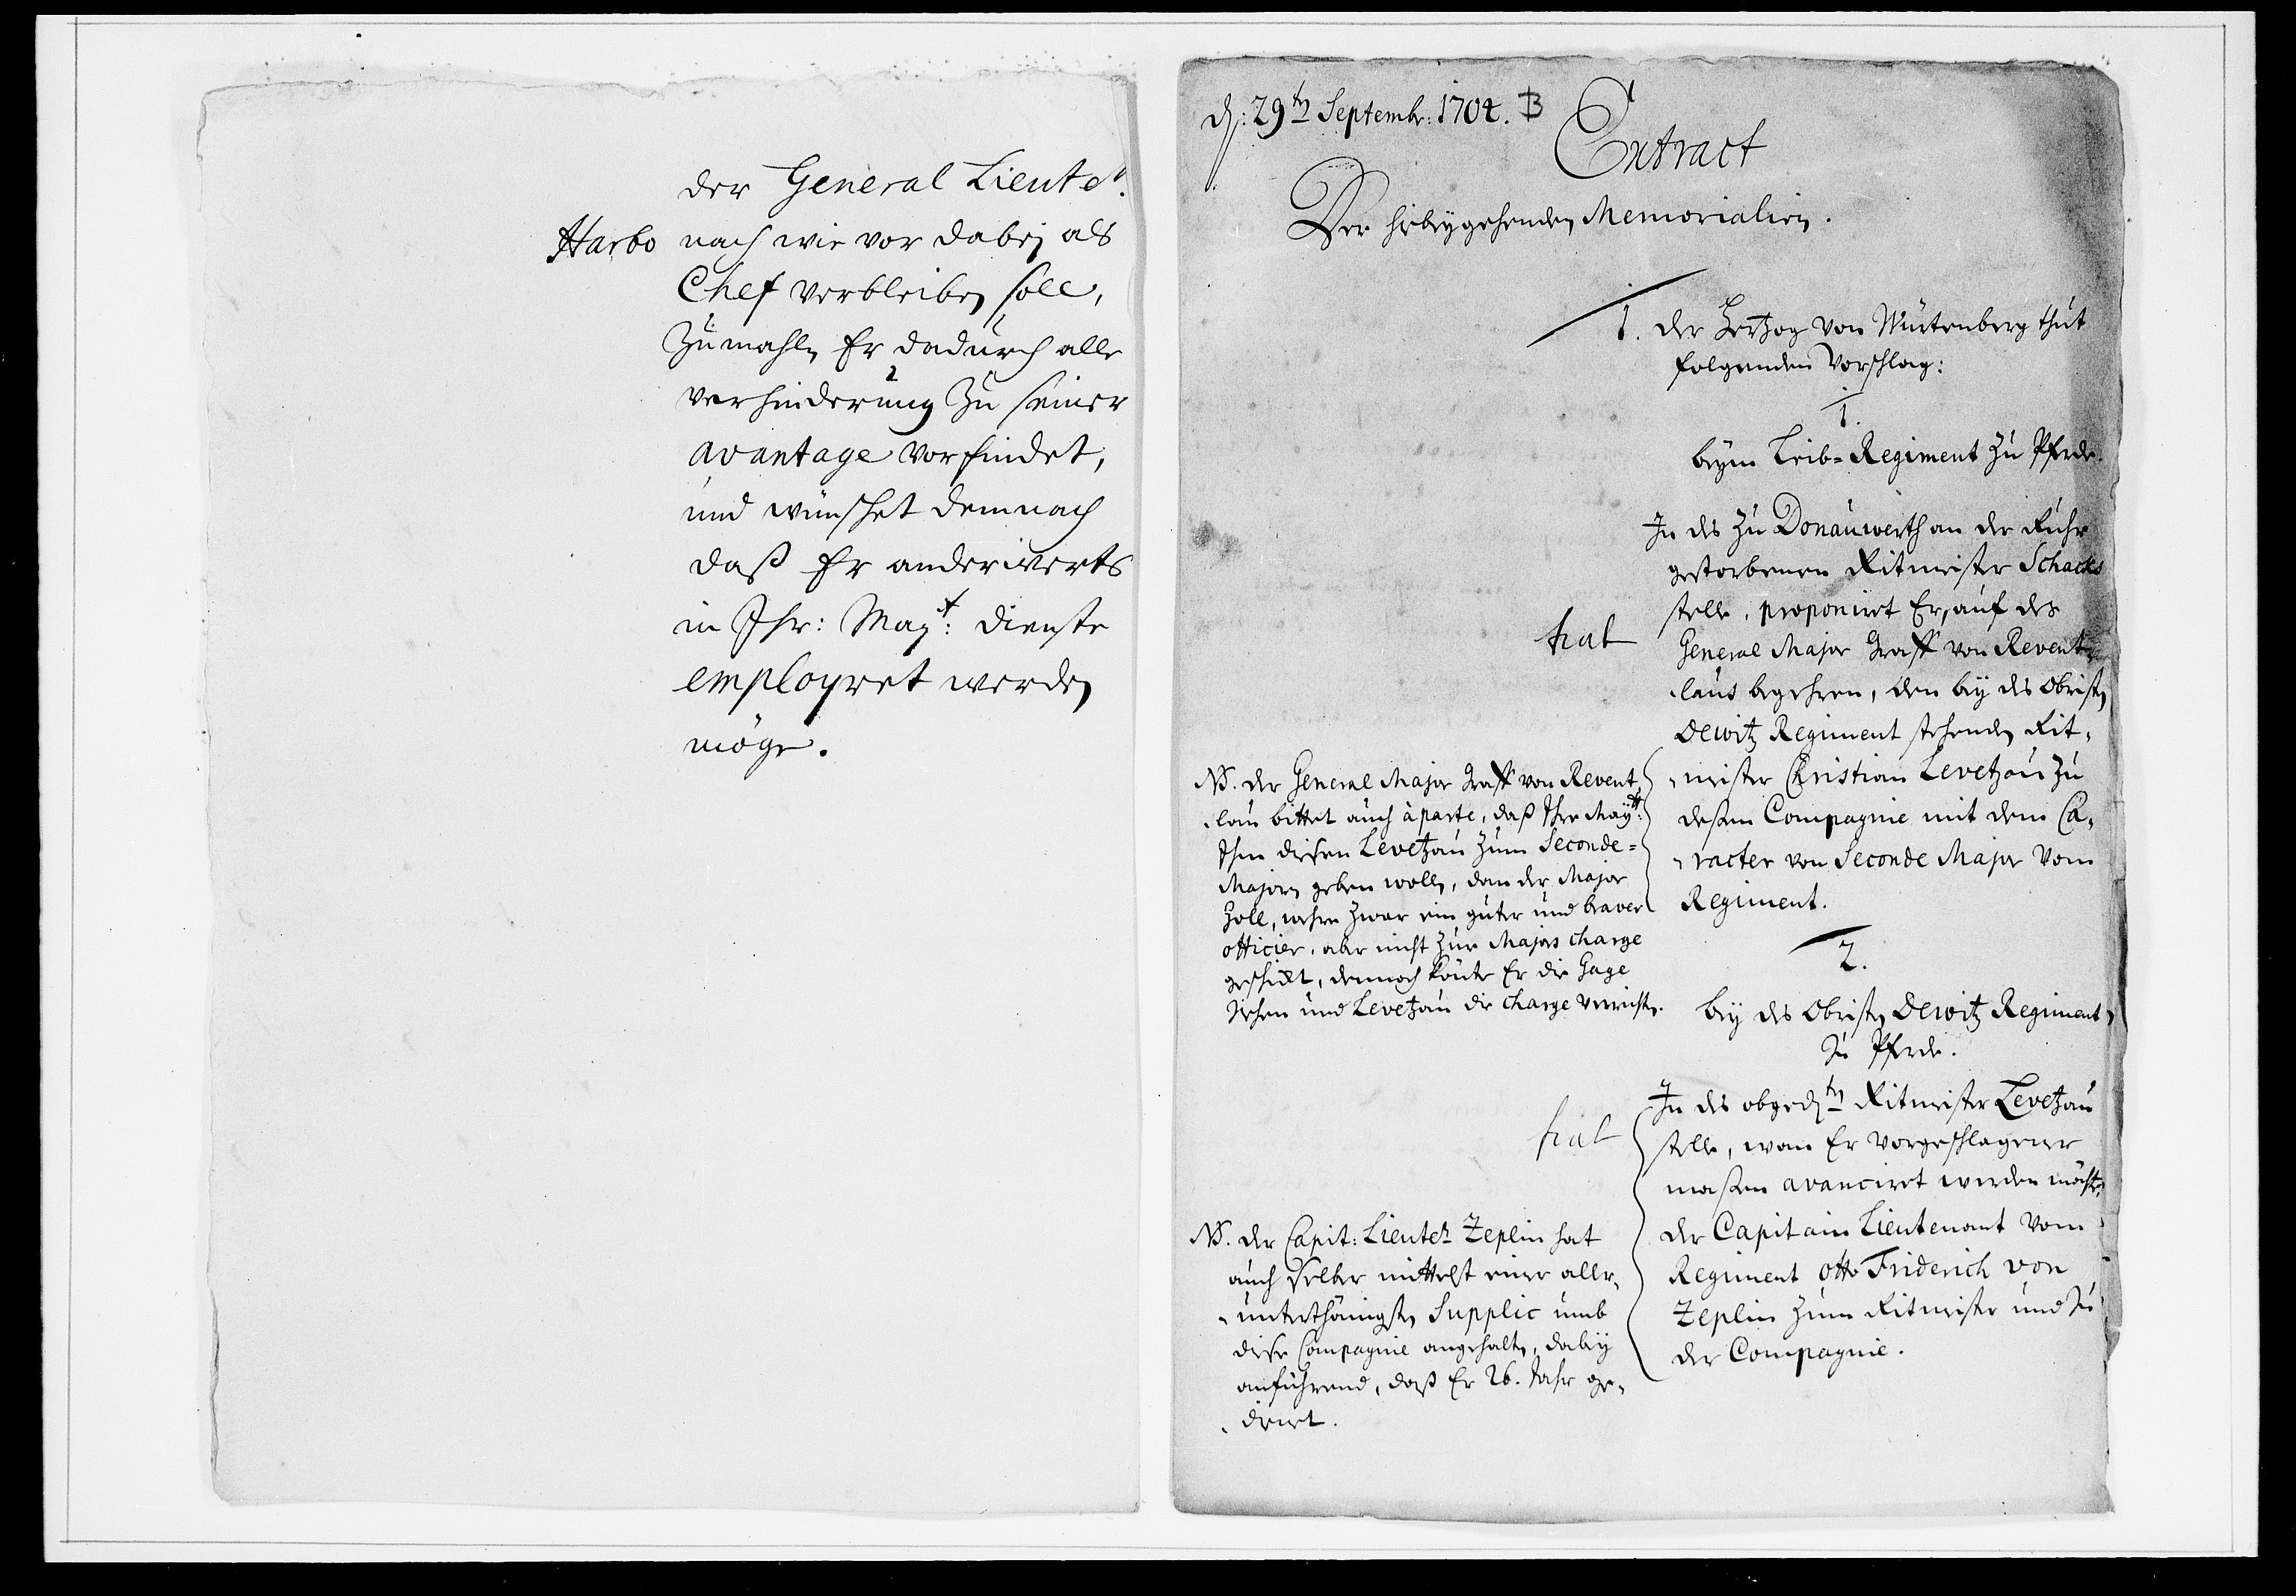 der General Lieute<sup>n</sup>.
Harbo nach wie vor dabej als
Chef verbleiben soll,
Zumahln Er dadurch alle
verhinderung Zu seiner
avantage vorfindet,
und wünschet demnach
daß Er anderwerts
in Ihr: Maj<sup>t</sup>: Dienste
employret werden
möge.
d: 29<sup>tn</sup> Septembr: 1704. B
Extract
Der hiebeygehenden Memorialien.
1. der Hertzog von Würtenberg thut
folgenden Vorschlag:
1.
beym Leib=Regiment zu Pferde.
In des zu Donauwerth an der Ruhr
gestorbenen Ritmeister Schacks
stelle, proponiret Er, auf des
fiat
General Major Graff von Revent,
,laus begehren, den bey des Obristn
Dewitz Regiment stehenden Rit,
,meister Christian Levetzau zu
deßen Compagnie mit dem Ca,
,racter von Seconde Major vom
Regiment.
NB. der General Major Graff von Revent,
,lau bittet auch à parte, daß Ihre Maytt:
Ihm diesen Levetzau zum Seconde=
Majorn geben wolln, dan der Major
Holl, wehre zwar ein guter und braver
officier, aber nicht zur Majors charge
geschickt, dennoch könte Er die Gage
Ziehen und Levetzau die charge verrichtn.
2.
bey des Obristn Dewitz Regiment
zu Pferde.
In des obged<sup>tn</sup> Ritmeister Levetzau
fiat
stelle, wan Er vorgeschlagener
maßen avanciret werden möchte,
der Capitain Lieutenant vom
Regiment Otto Friderich von
Zeplin zum Ritmeister und zu
der Compagnie.
NB. der Capit: Lieute<sup>n</sup> Zeplin hat
auch selber mittelst einer aller,
,unterthänigstn Supplic umb
diese Compagnie angehaltn, dabey
anführend, daß Er 26. Jahr ge,
,dienet.